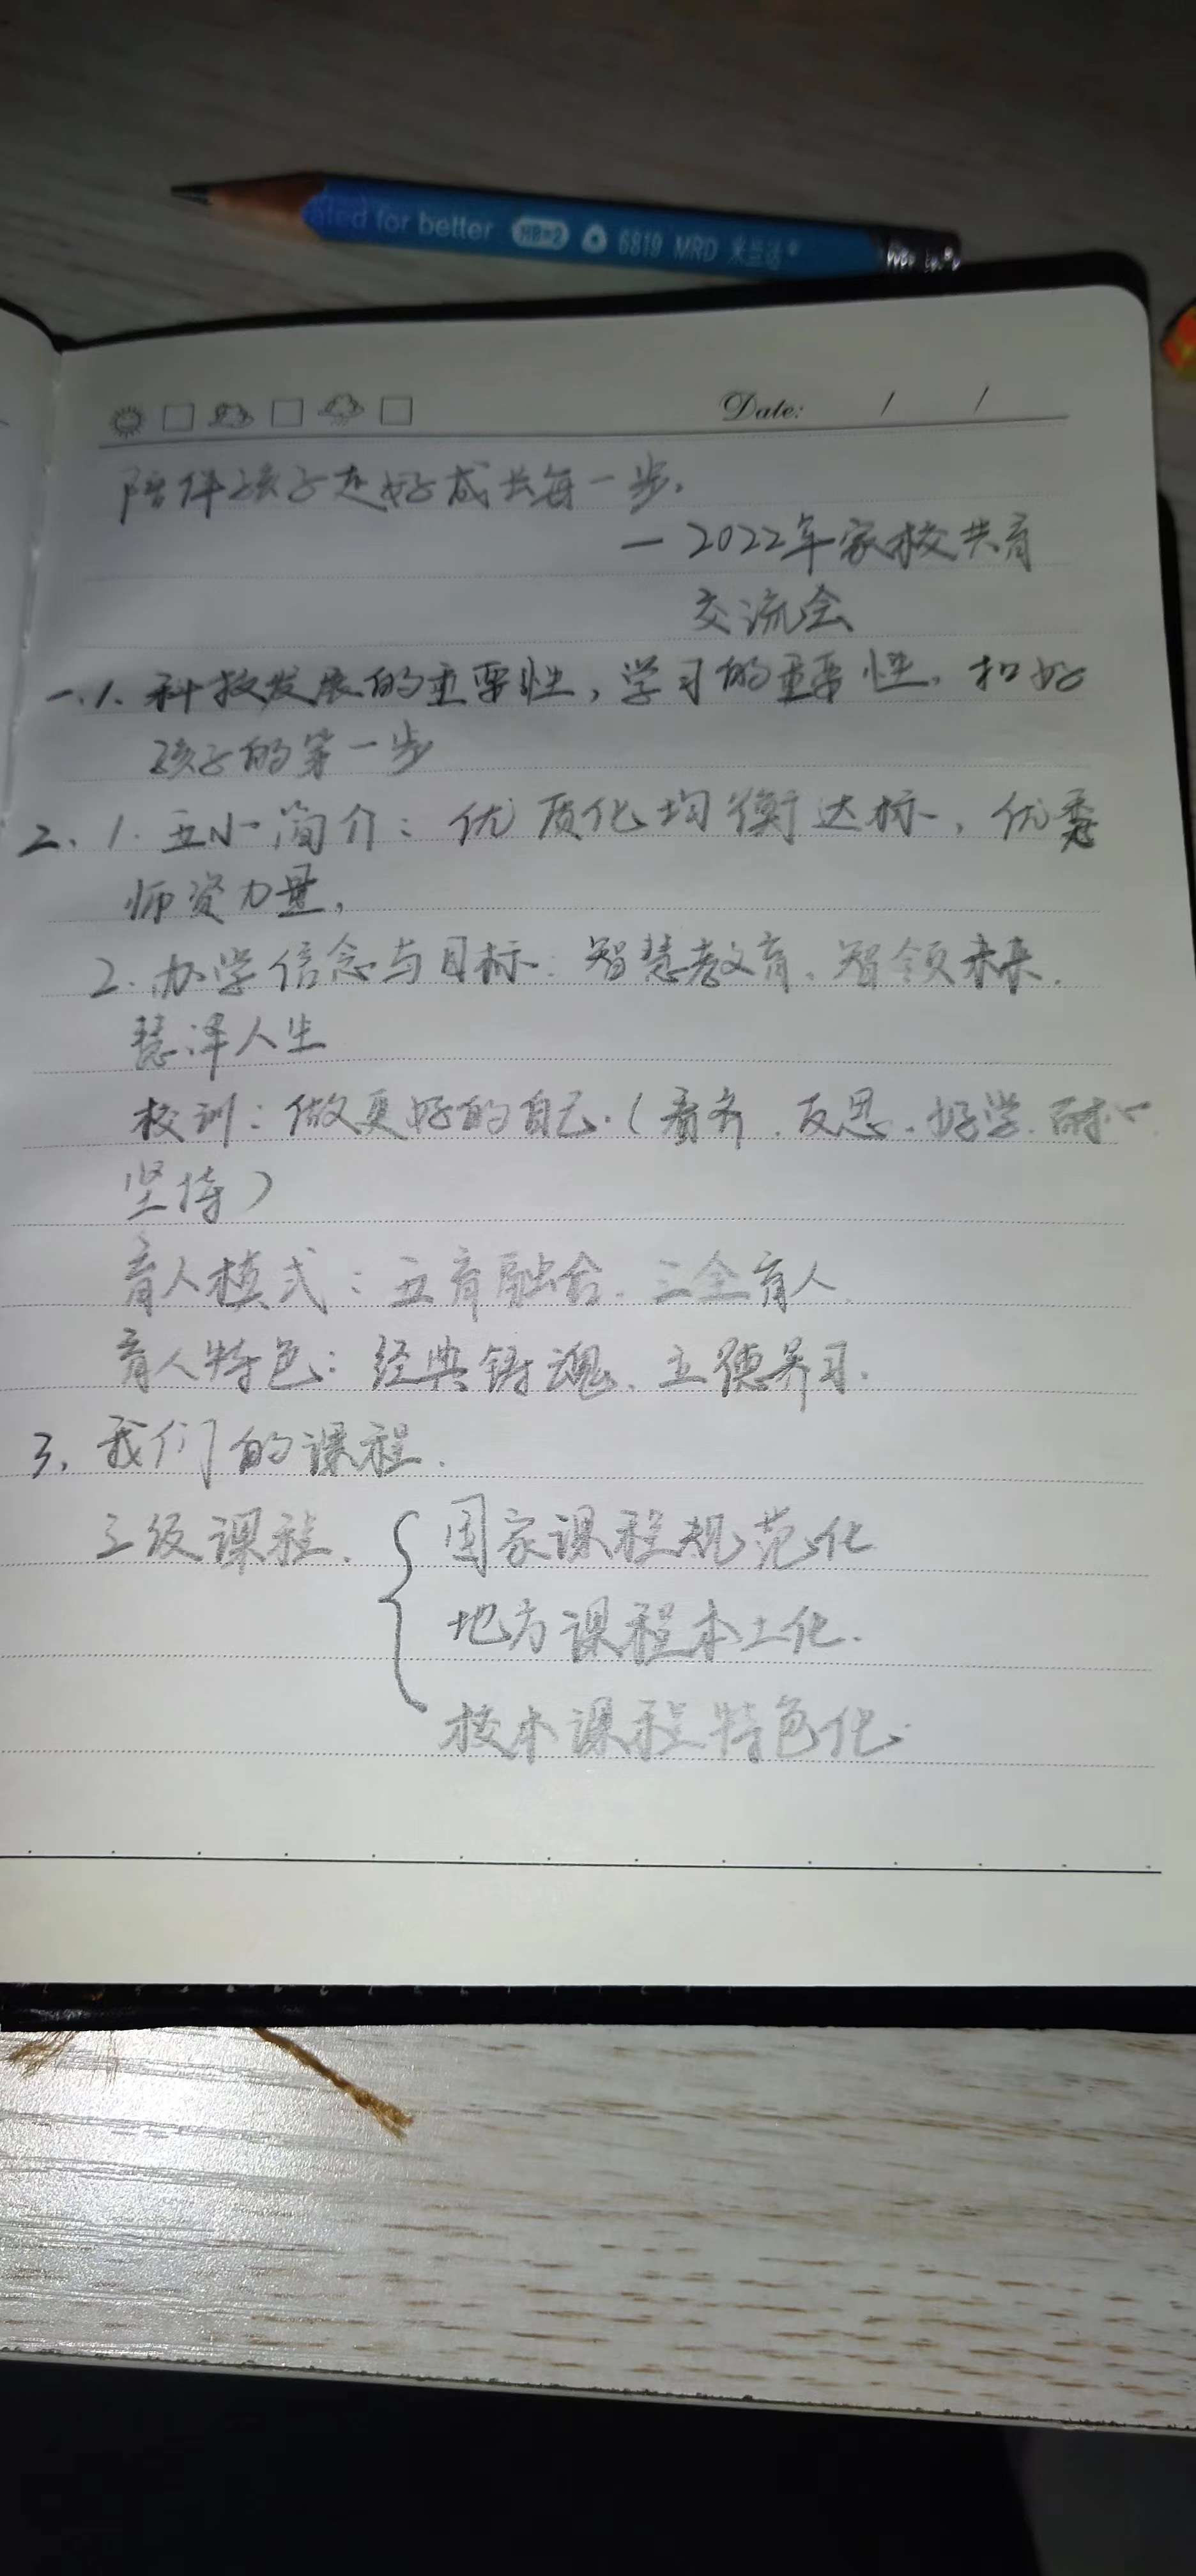 ated for better HB=2 6819 MRD 米兰达
Date: / /
陪伴孩子走好成长每一步.
— 2022年家校共育
交流会
一.1. 科技发展的重要性, 学习的重要性, 扣好
孩子的第一步
二. 1. 五小简介: 优质化均衡达标, 优秀
师资力量,
2. 办学信念与目标: 智慧教育、智领未来.
慧泽人生
校训: 做更好的自己.(看齐.反思.好学.耐心
坚持)
育人模式: 五育融合. 三全育人.
育人特色: 经典铸魂、立德养习.
3. 我们的课程.
三级课程. { 国家课程规范化
地方课程本土化.
校本课程特色化.